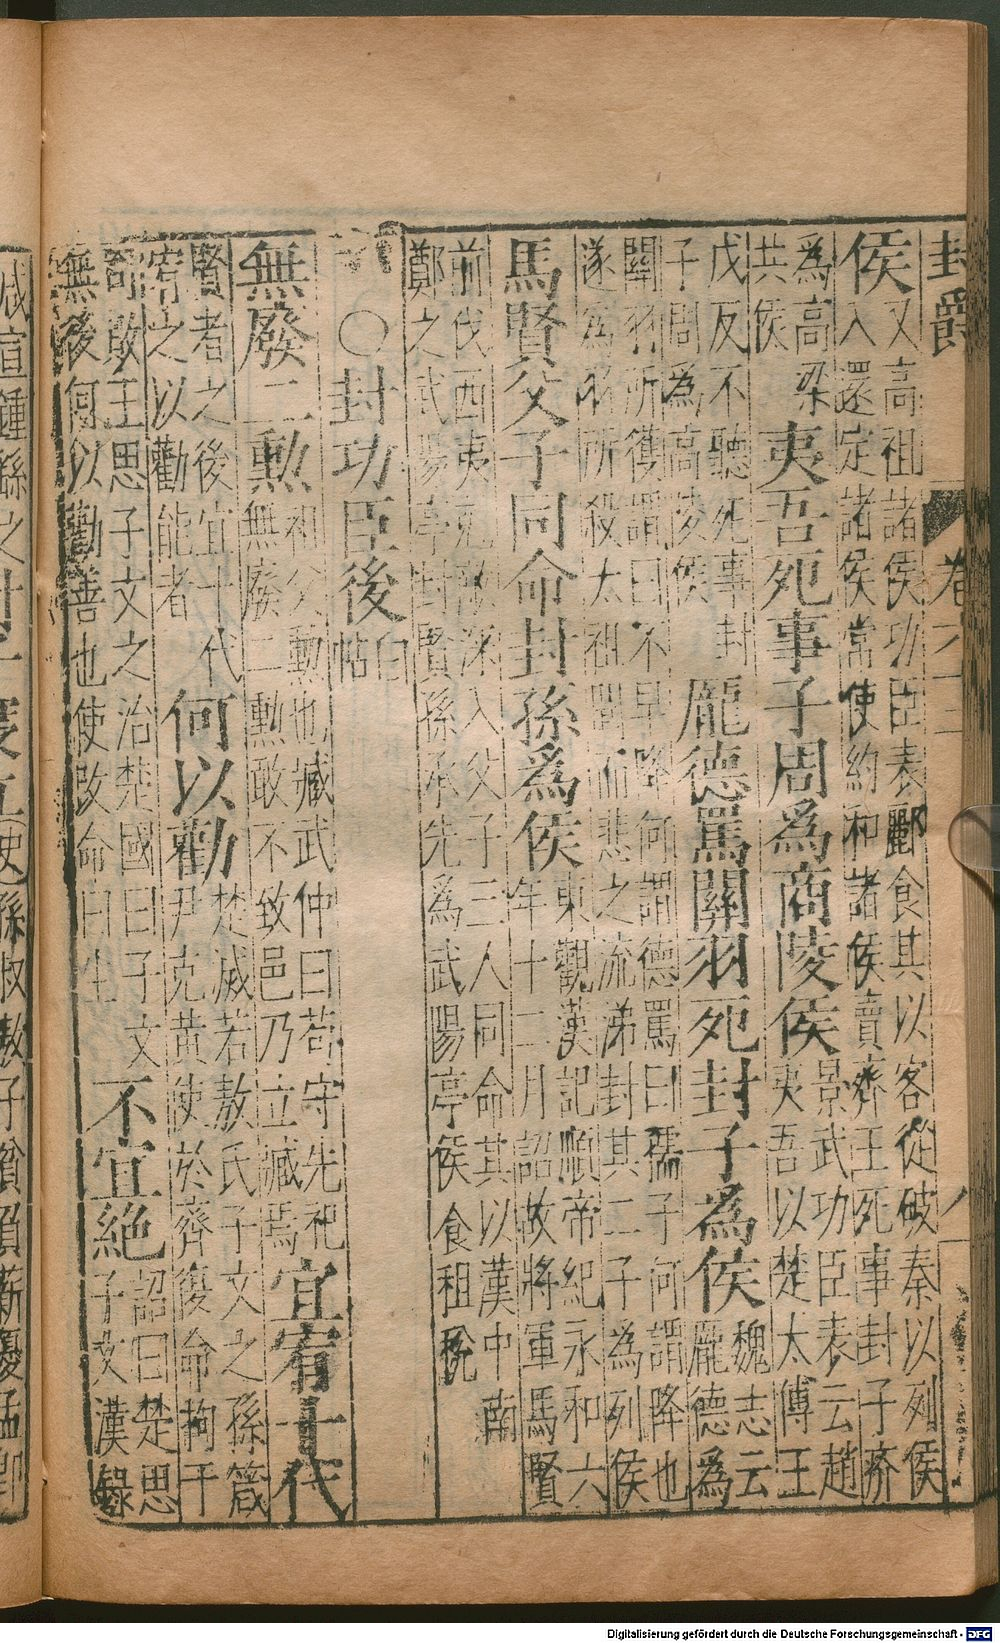 封爵 卷六十 八
侯又高祖諸侯功臣表酈食其以客從破秦以列侯
入還定諸侯常使約和諸侯賣齊王死事封子疥
為高梁共侯 夷吾死事子周為商陵侯 景武功臣表云趙夷吾以楚太傅王
戊反不聽死事封子周為高陵侯 龐德罵關羽死封子為侯 魏志云龐德為
關羽所獲謂曰不早降何謂德罵曰儒子何謂降也
遂為羽所殺太祖聞而悲之流涕封其二子為列侯
馬賢父子同命封孫為侯 東觀漢記順帝紀永和六年十二月詔故將軍馬賢
前伐西夷克敵深入父子三人同命其以漢中南
鄭之武陽亭封賢孫承先為武陽亭侯食租稅
〇封功臣後 白帖
無廢二勳 祖父勳也臧武仲曰苟守先祀無廢二勳敢不致邑乃立臧焉 宜宥十代
賢者之後宜十代宥之以勸能者 何以勸 楚滅若敖氏子文之孫箴尹克黃使於齊復命拘于
司敗王思子文之治楚國曰子文無後何以勸善也使改命曰生 不宜絕 詔曰楚思子文漢錄
減宣鍾繇之封
使孫叔敖子貧負薪優孟即
Digitalisierung gefördert durch die Deutsche Forschungsgemeinschaft - DFG